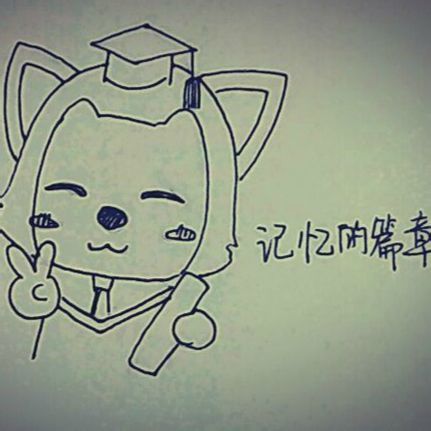 记忆的篇章